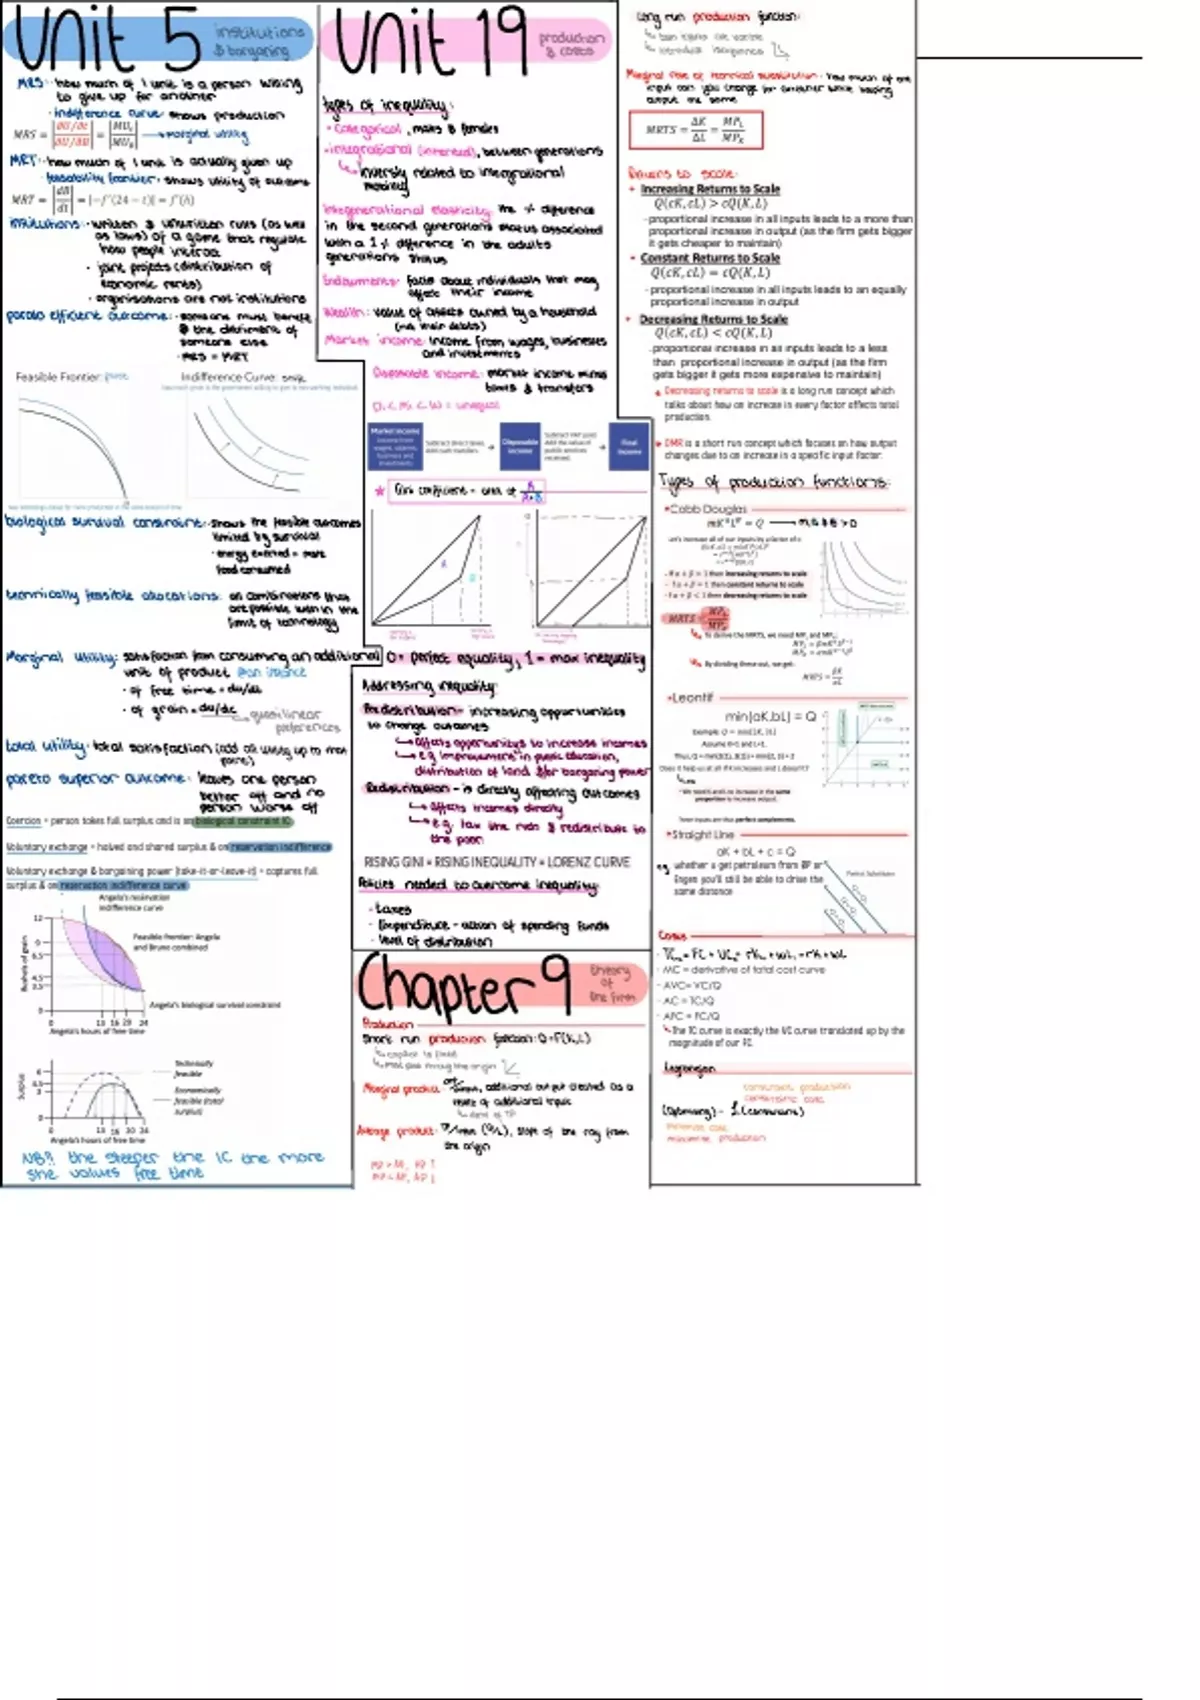 Unit 5
institutions
& bargaining
MRS: how much of 1 unit is a person willing
to give up for another
indifference curve: shows production
MRS = |∂U/∂t / ∂U/∂B| = |MUt / MUB| → marginal utility
MRT: how much of 1 unit is actually given up
feasability frontier: shows utility of outcome
MRT = |dB/dt| = |−f'(24 − t)| = f'(h)
institutions: written & unwritten rules (as well
as laws) of a game that regulate
how people interact
· joint projects (distribution of
economic rents)
· organisations are not institutions
pareto efficient outcome: someone must benefit
@ the detriment of
someone else
· MRS = MRT
Feasible Frontier:
Indifference Curve:
biological survival constraint: shows the feasible outcomes
limited by survival
· energy exerted = more
food consumed
technically feasible allocations: all combinations that
are possible within the
limit of technology
Marginal utility: satisfaction from consuming an additional
unit of product @an instance
· of free time = du/dt
· of grain = du/dc → quasilinear
preferences
total utility: total satisfaction (add all utility up to that
point)
pareto superior outcome: leaves one person
better off and no
person worse off
Coercion = person takes full surplus and is on biological constraint IC
Voluntary exchange = halved and shared surplus & on reservation indifference
Voluntary exchange & bargaining power (take-it-or-leave-it) = captures full
surplus & on reservation indifference curve
Angela's reservation
indifference curve
Feasible frontier: Angela
and Bruno combined
Bushels of grain
12
9
6.5
4.5
3.5
0
0 13 16 20 24
Angela's biological survival constraint
Angela's hours of free time
Technically
feasible
Economically
feasible (total
surplus)
Surplus
0 13 16 20 24
Angela's hours of free time
NB!! the steeper the IC the more
she values free time
Unit 19
production
& costs
types of inequality:
· Categorical, males & females
· integrational (inherited), between generations
↳ inversly related to integrational
mobility
Integenerational elasticity: the % difference
in the second generations status associated
with a 1% difference in the adults
generations status
Endowments: facts about individuals that may
affect their income
Wealth: value of assets owned by a household
(net their debts)
Market income: income from wages, businesses
and investments
Disposable income: market income minus
taxes & transfers
Market income
Subtract direct taxes.
Add cash transfers.
Disposable
income
Subtract VAT paid.
Add the value of
public services
received.
Final
income
Gini coefficient = area of A/A+B
A
B
0 = perfect equality, 1 = max inequality
Addressing inequality:
Predistribution - increasing opportunities
to change outcomes
↳ affects opportunitys to increase incomes
↳ e.g improvement in public education,
distribution of land &/or bargaining power
Redistribution - is directly affecting outcomes
↳ affects incomes directly
↳ e.g. tax the rich & redistribute to
the poor
RISING GINI = RISING INEQUALITY = LORENZ CURVE
Policies needed to overcome inequality:
· taxes
· Expenditure - action of spending funds
· level of distribution
Chapter 9
theory
of
the firm
Production
Short run production function: Q=F(K,L)
↳ capital is fixed
Marginal product: additional output created as a
result of additional input
Average product: (Q/L), slope of the ray from
the origin
MP > AP, AP ↑
MP < AP, AP ↓
Long run production function:
↳ both inputs are variable
↳ introduce isoquants
Marginal rate of technical substitution: how much of one
input can you change for another while having
output the same
MRTS = ΔK/ΔL = MPL/MPK
Returns to scale:
• Increasing Returns to Scale
Q(cK, cL) > cQ(K, L)
-proportional increase in all inputs leads to a more than
proportional increase in output (as the firm gets bigger
it gets cheaper to maintain)
• Constant Returns to Scale
Q(cK, cL) = cQ(K, L)
- proportional increase in all inputs leads to an equally
proportional increase in output
• Decreasing Returns to Scale
Q(cK, cL) < cQ(K, L)
-proportional increase in all inputs leads to a less
than proportional increase in output (as the firm
gets bigger it gets more expensive to maintain)
Decreasing returns to scale is a long run concept which
talks about how an increase in every factor effects total
production.
DMR is a short run concept which focuses on how output
changes due to an increase in a specific input factor.
Types of production functions:
•Cobb Douglas
mKᵅLᵝ = Q
- If α + β > 1 then increasing returns to scale
- If α + β = 1 then constant returns to scale
- If α + β < 1 then decreasing returns to scale
MRTS = MPL/MPK
To derive the MRTS, we need MPL and MPK:
By dividing these out, we get:
MRTS = βK/αL
•Leontif
min(aK,bL) = Q
Does it help us at all if K increases and L doesn't?
↳ no
These inputs are thus perfect complements.
•Straight Line
aK + bL + c = Q
eg whether u get petroleum from BP or
Engen you'll still be able to drive the
same distance
Perfect Substitutes
Costs
· MC = derivative of total cost curve
· AVC= VC/Q
· AC = TC/Q
· AFC = FC/Q
The TC curve is exactly the VC curve translated up by the
magnitude of our FC.
Lagrangian
constraint: production
constraint: cost
minimise cost
maximise production